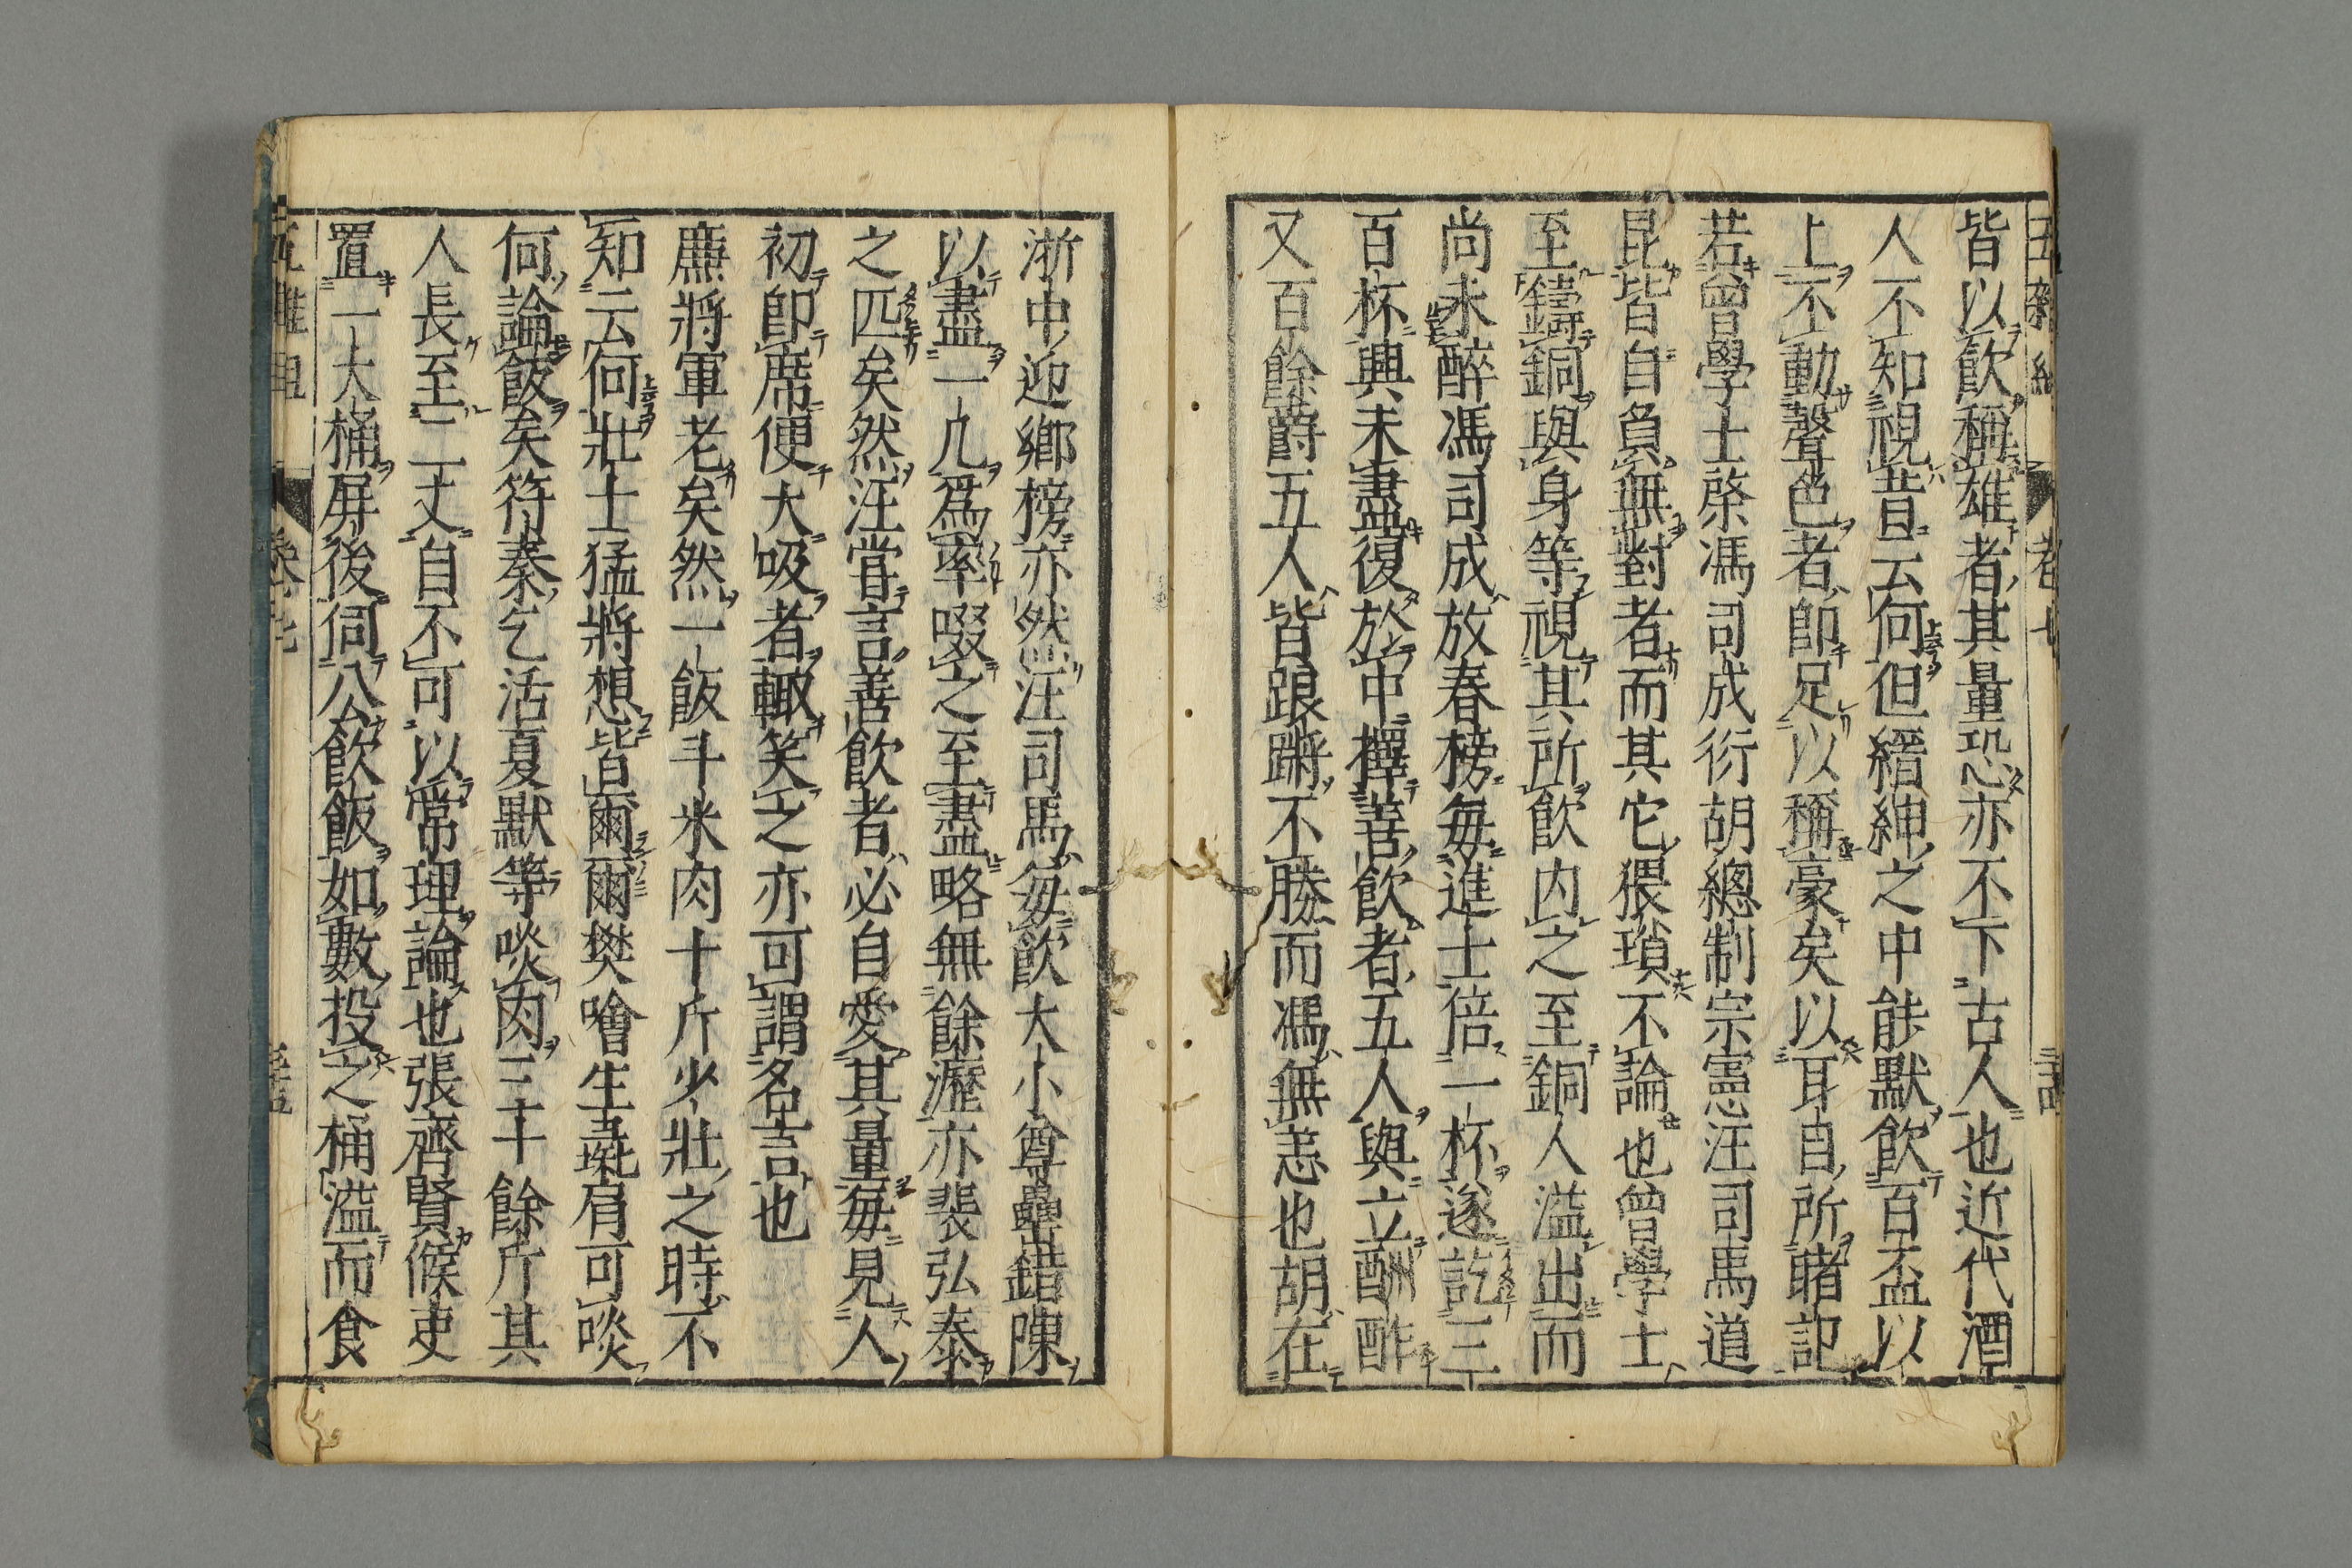 皆以飲稱雄者其量恐亦不下古人也近代酒
人不知視昔云何但縉紳之中能默飲百盃以
上不動聲色者即足以稱豪矣以耳目所睹記
若曾學士棨馮司成衍胡總制宗憲汪司馬道
昆皆自負無對者而其它猥瑣不論也曾學士
至鑄銅與身等視其所飲內之至銅人溢出而
尚未醉馮司成放春榜每進士倍一杯遂訖三
百杯興未盡復於中擇善飲者五人與立酬酢
又百餘爵五人皆踉蹡不勝而馮無恙也胡在
浙中迎鄉榜亦然汪司馬每飲大小尊罍錯陳
以盡一几爲率啜之至盡略無餘瀝亦裴弘泰
之匹矣然汪甞言善飲者必自愛其量每見人
初即席便大吸者輙笑之亦可謂名言也
廉將軍老矣然一飯斗米肉十斤少壯之時不
知云何壯士猛將想皆爾爾樊噲生彘肩可啖
何論飯矣符秦乞活夏默等啖肉三十餘斤其
人長至二丈自不可以常理論也張齊賢候吏
置一大桶屏後伺公飲飯如數投之桶溢而食
五雜俎
卷七